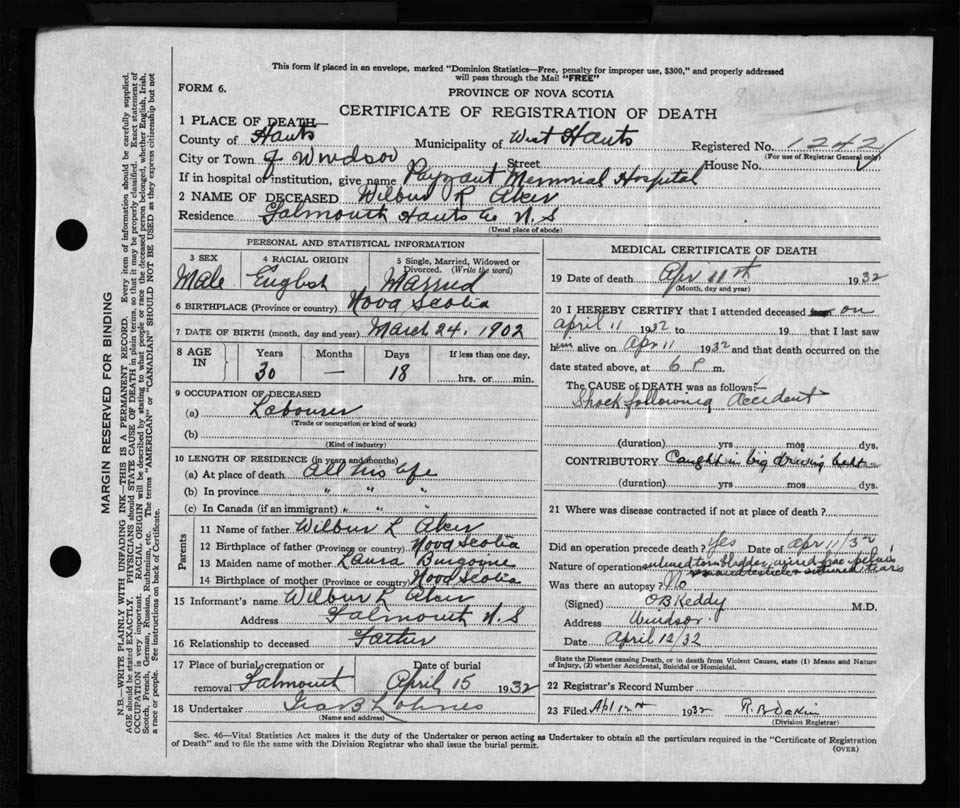 This form if placed in an envelope, marked "Dominion Statistics—Free, penalty for improper use, $300," and properly addressed
will pass through the Mail "FREE"
FORM 6.
PROVINCE OF NOVA SCOTIA
CERTIFICATE OF REGISTRATION OF DEATH
1 PLACE OF DEATH—
County of Hants Municipality of West Hants Registered No. 1242
(For use of Registrar General only)
City or Town of Windsor Street House No.
If in hospital or institution, give name Payzant Memorial Hospital
2 NAME OF DECEASED Wilbur R Aker
Residence Falmouth Hants Co N.S
(Usual place of abode)
PERSONAL AND STATISTICAL INFORMATION
3 SEX 4 RACIAL ORIGIN 5 Single, Married, Widowed or
Divorced. (Write the word)
Male English Married
6 BIRTHPLACE (Province or country) Nova Scotia
7 DATE OF BIRTH (month, day and year) March 24, 1902
8 AGE IN Years Months Days If less than one day,
30 — 18 hrs. or min.
9 OCCUPATION OF DECEASED
(a) Labourer
(Trade or occupation or kind of work)
(b)
(Kind of industry)
10 LENGTH OF RESIDENCE (in years and months)
(a) At place of death all his life
(b) In province " " "
(c) In Canada (if an immigrant) " " "
Parents
11 Name of father Wilbur L Aker
12 Birthplace of father (Province or country) Nova Scotia
13 Maiden name of mother Laura Burgoyne
14 Birthplace of mother (Province or country) Nova Scotia
15 Informant's name Wilbur L Aker
Address Falmouth N.S
16 Relationship to deceased Father
17 Place of burial, cremation or Date of burial
removal Falmouth April 15 1932
18 Undertaker
(Name and address)
MEDICAL CERTIFICATE OF DEATH
19 Date of death Apr 11th 1932
(Month, day and year)
20 I HEREBY CERTIFY that I attended deceased from on
April 11 1932 to 19 that I last saw
him alive on Apr 11 1932 and that death occurred on the
date stated above, at 6 P m.
The CAUSE OF DEATH was as follows:—
Shock following accident
(duration) yrs mos dys.
CONTRIBUTORY Caught in big driving belt
(duration) yrs. mos. dys.
21 Where was disease contracted if not at place of death?
Did an operation precede death? Yes Date of Apr 11/32
Nature of operation sutured torn bladder, wired frac pelvis
sutured tears
Was there an autopsy? No
(Signed) O B Keddy M.D.
Address Windsor
Date April 12/32
State the Disease causing Death, or in death from Violent Causes, state (1) Means and Nature
of Injury, (2) whether Accidental, Suicidal or Homicidal.
22 Registrar's Record Number
23 Filed Apl 12th 1932 R. B Dakin
(Division Registrar)
Sec. 46—Vital Statistics Act makes it the duty of the Undertaker or person acting as Undertaker to obtain all the particulars required in the "Certificate of Registration
of Death" and to file the same with the Division Registrar who shall issue the burial permit.
(OVER)
MARGIN RESERVED FOR BINDING
N.B.—WRITE PLAINLY WITH UNFADING INK—THIS IS A PERMANENT RECORD. Every item of information should be carefully supplied.
AGE should be stated EXACTLY. PHYSICIANS should STATE CAUSE OF DEATH in plain terms, so that it may be properly classified. Exact statement of
OCCUPATION is very important. RACIAL ORIGIN will be described by stating to what people or race the deceased person belonged, whether English, Irish,
Scotch, French, German, Russian, Ruthenian, etc. The terms "AMERICAN" or "CANADIAN" SHOULD NOT BE USED as they express citizenship but not
a race or people. See instructions on back of Certificate.